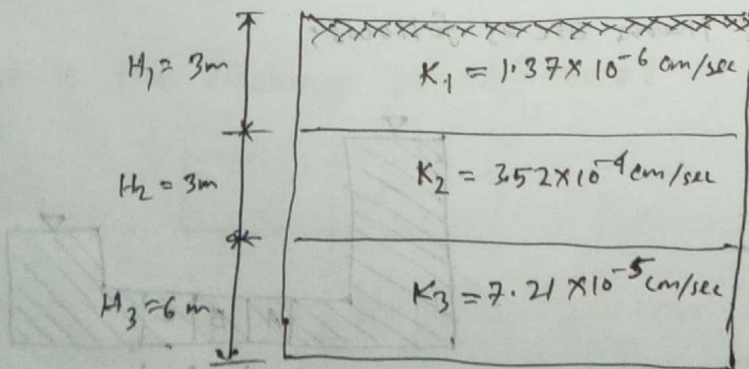 H₁ = 3m
K₁ = 1.37 × 10⁻⁶ cm/sec
H₂ = 3m
K₂ = 3.52 × 10⁻⁴ cm/sec
H₃ = 6 m
K₃ = 7.21 × 10⁻⁵ cm/sec